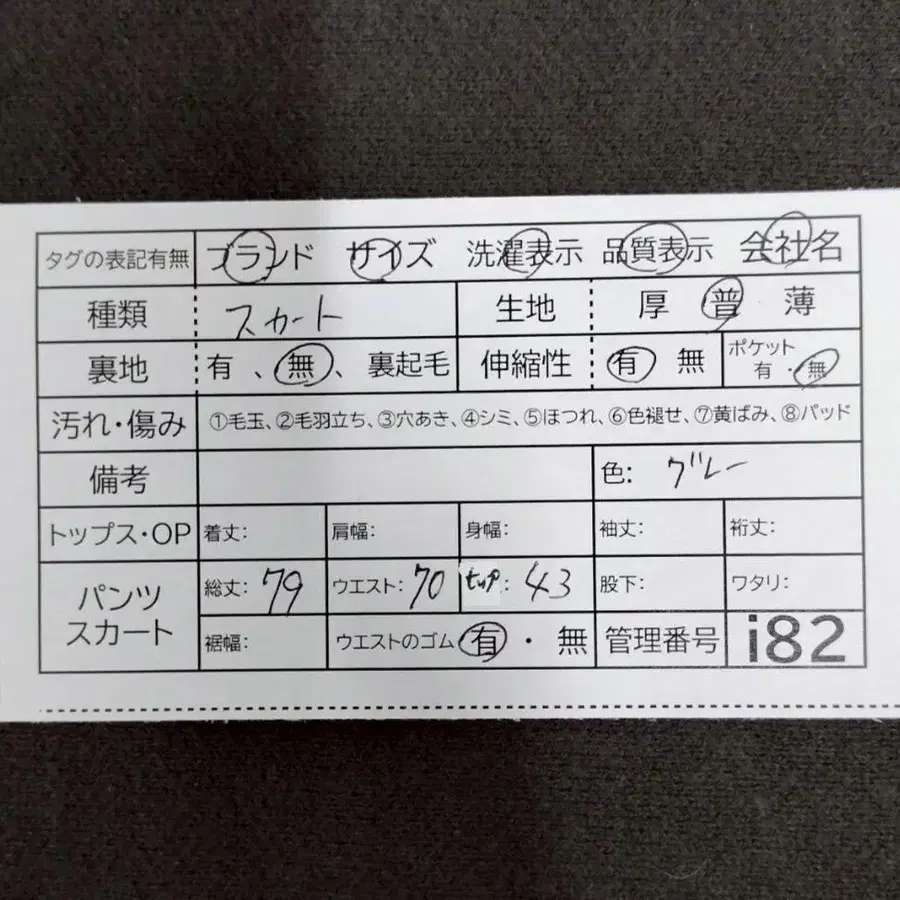 タグの表記有無 ブランド サイズ 洗濯表示 品質表示 会社名
種類 スカート 生地 厚 普 薄
裏地 有 、 無 、 裏起毛 伸縮性 有 無 ポケット 有 ・ 無
汚れ・傷み ①毛玉、②毛羽立ち、③穴あき、④シミ、⑤ほつれ、⑥色褪せ、⑦黄ばみ、⑧パッド
備考 色: グレー
トップス・OP 着丈: 肩幅: 身幅: 袖丈: 裄丈:
パンツ スカート 総丈: 79 ウエスト: 70 ヒップ: 43 股下: ワタリ:
裾幅: ウエストのゴム 有 ・ 無 管理番号 i82